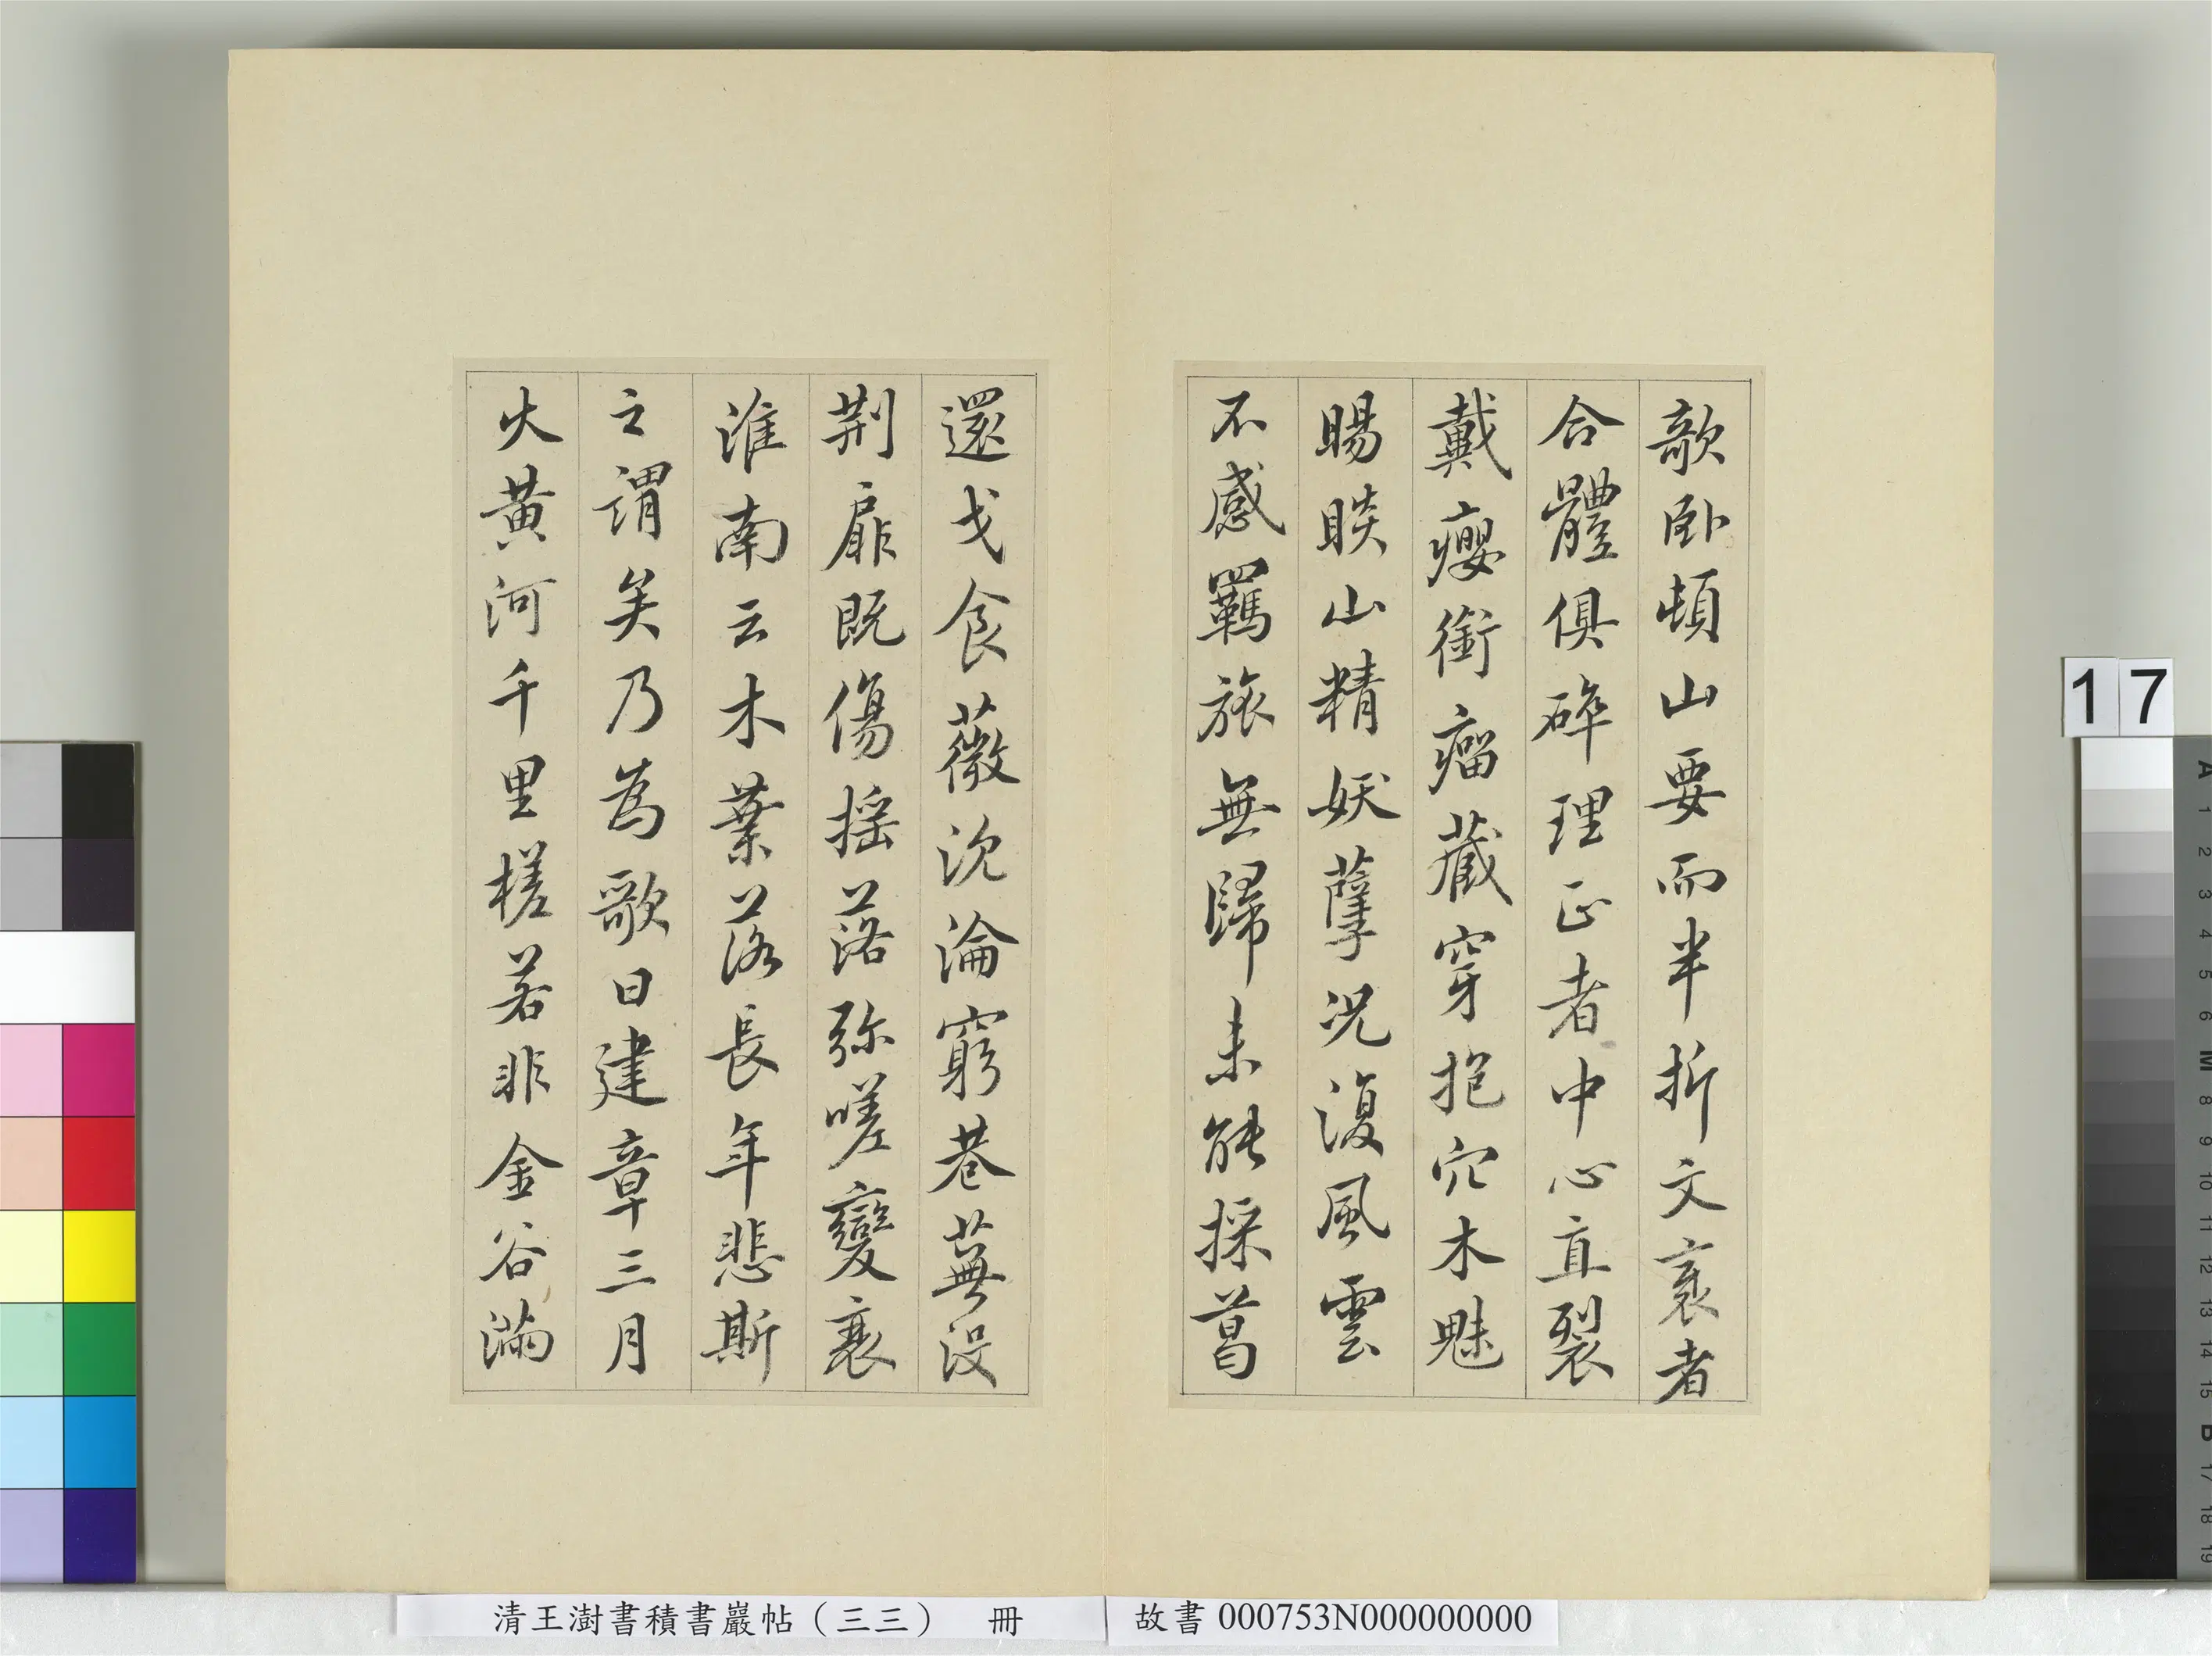 欹臥頓山要而半折文袤者
合體俱碎理正者中心直裂
戴癭銜瘤藏穿抱穴木魅
睗睒山精妖孽況復風雲
不感羈旅無歸未能採葛
還成食薇沉淪窮巷蕪没
荆扉既傷搖落弥嗟變衰
淮南云木葉落長年悲斯
之謂矣乃為歌曰建章三月
火黃河千里槎若非金谷滿
17
清王澍書積書巖帖（三三） 冊
故書000753N000000000